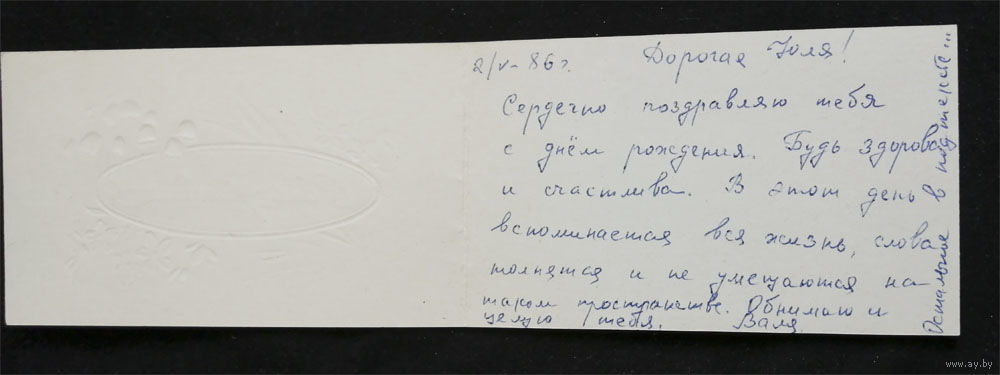 2/V-86 г. Дорогая Юля!
Сердечно поздравляю тебя
с днём рождения. Будь здорова
и счастлива. В этот день
вспоминается вся жизнь, слова
толпятся и не умещаются на
таком пространстве. Обнимаю и
целую тебя. Валя.
Остальное в подтексте...
www.ay.by